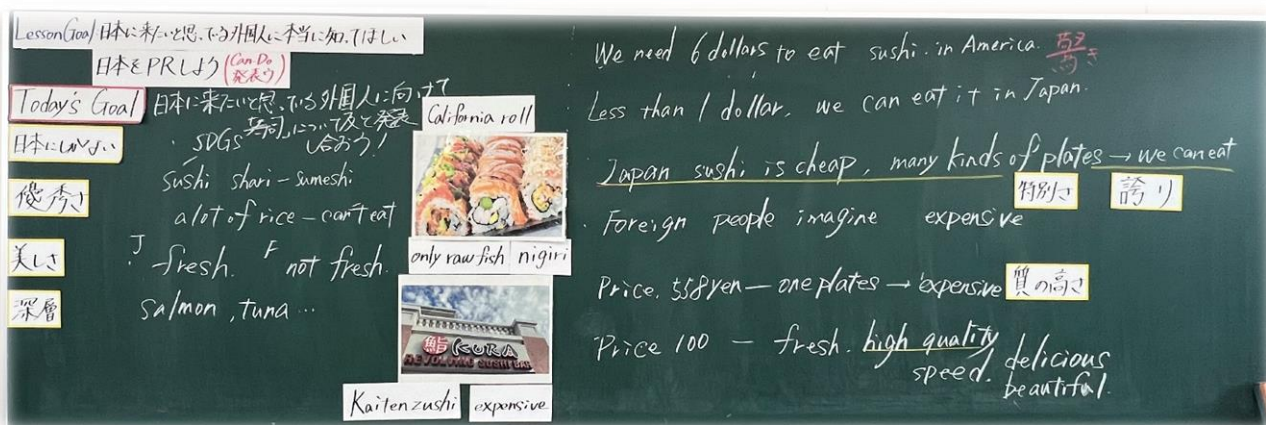 Lesson Goal 日本に来たいと思っている外国人に本当に知ってほしい
日本をPRしよう (Can-Do 発表う)
Today's Goal 日本に来たいと思っている外国人に向けて
SDGs 寿司について 発表
合おう!
日本にしかない
優秀さ
美しさ
深層
sushi shari - sumeshi
a lot of rice - can't eat
J fresh. F not fresh.
salmon, tuna ...
California roll
only raw fish nigiri
鮨 KURA
REVOLVING SUSHI BAR
Kaitenzushi expensive
We need 6 dollars to eat sushi in America. 驚き
Less than 1 dollar, we can eat it in Japan.
Japan sushi is cheap, many kinds of plates → we can eat
特別さ 誇り
Foreign people imagine expensive
Price. 558 yen — one plates → expensive 質の高さ
Price 100 — fresh. high quality
speed. delicious
beautiful.